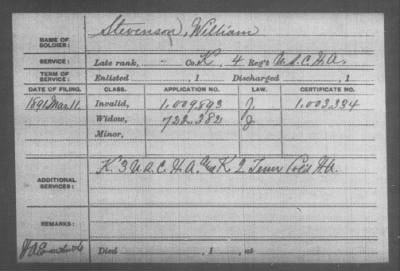 NAME OF SOLDIER: Stevenson, William
SERVICE: Late rank, - Co. K, 4 Reg't U.S.C.H.A.
TERM OF SERVICE: Enlisted , 1 Discharged , 1
DATE OF FILING. CLASS. APPLICATION NO. LAW. CERTIFICATE NO.
1891 Mar. 11. Invalid, 1,009,893 J. 1,003,334
Widow, 722,382 J
Minor,
ADDITIONAL SERVICES: K 3 U.S.C.H.A. K 2 Tenn Col'd H.A.
REMARKS:
Died , 1 , at